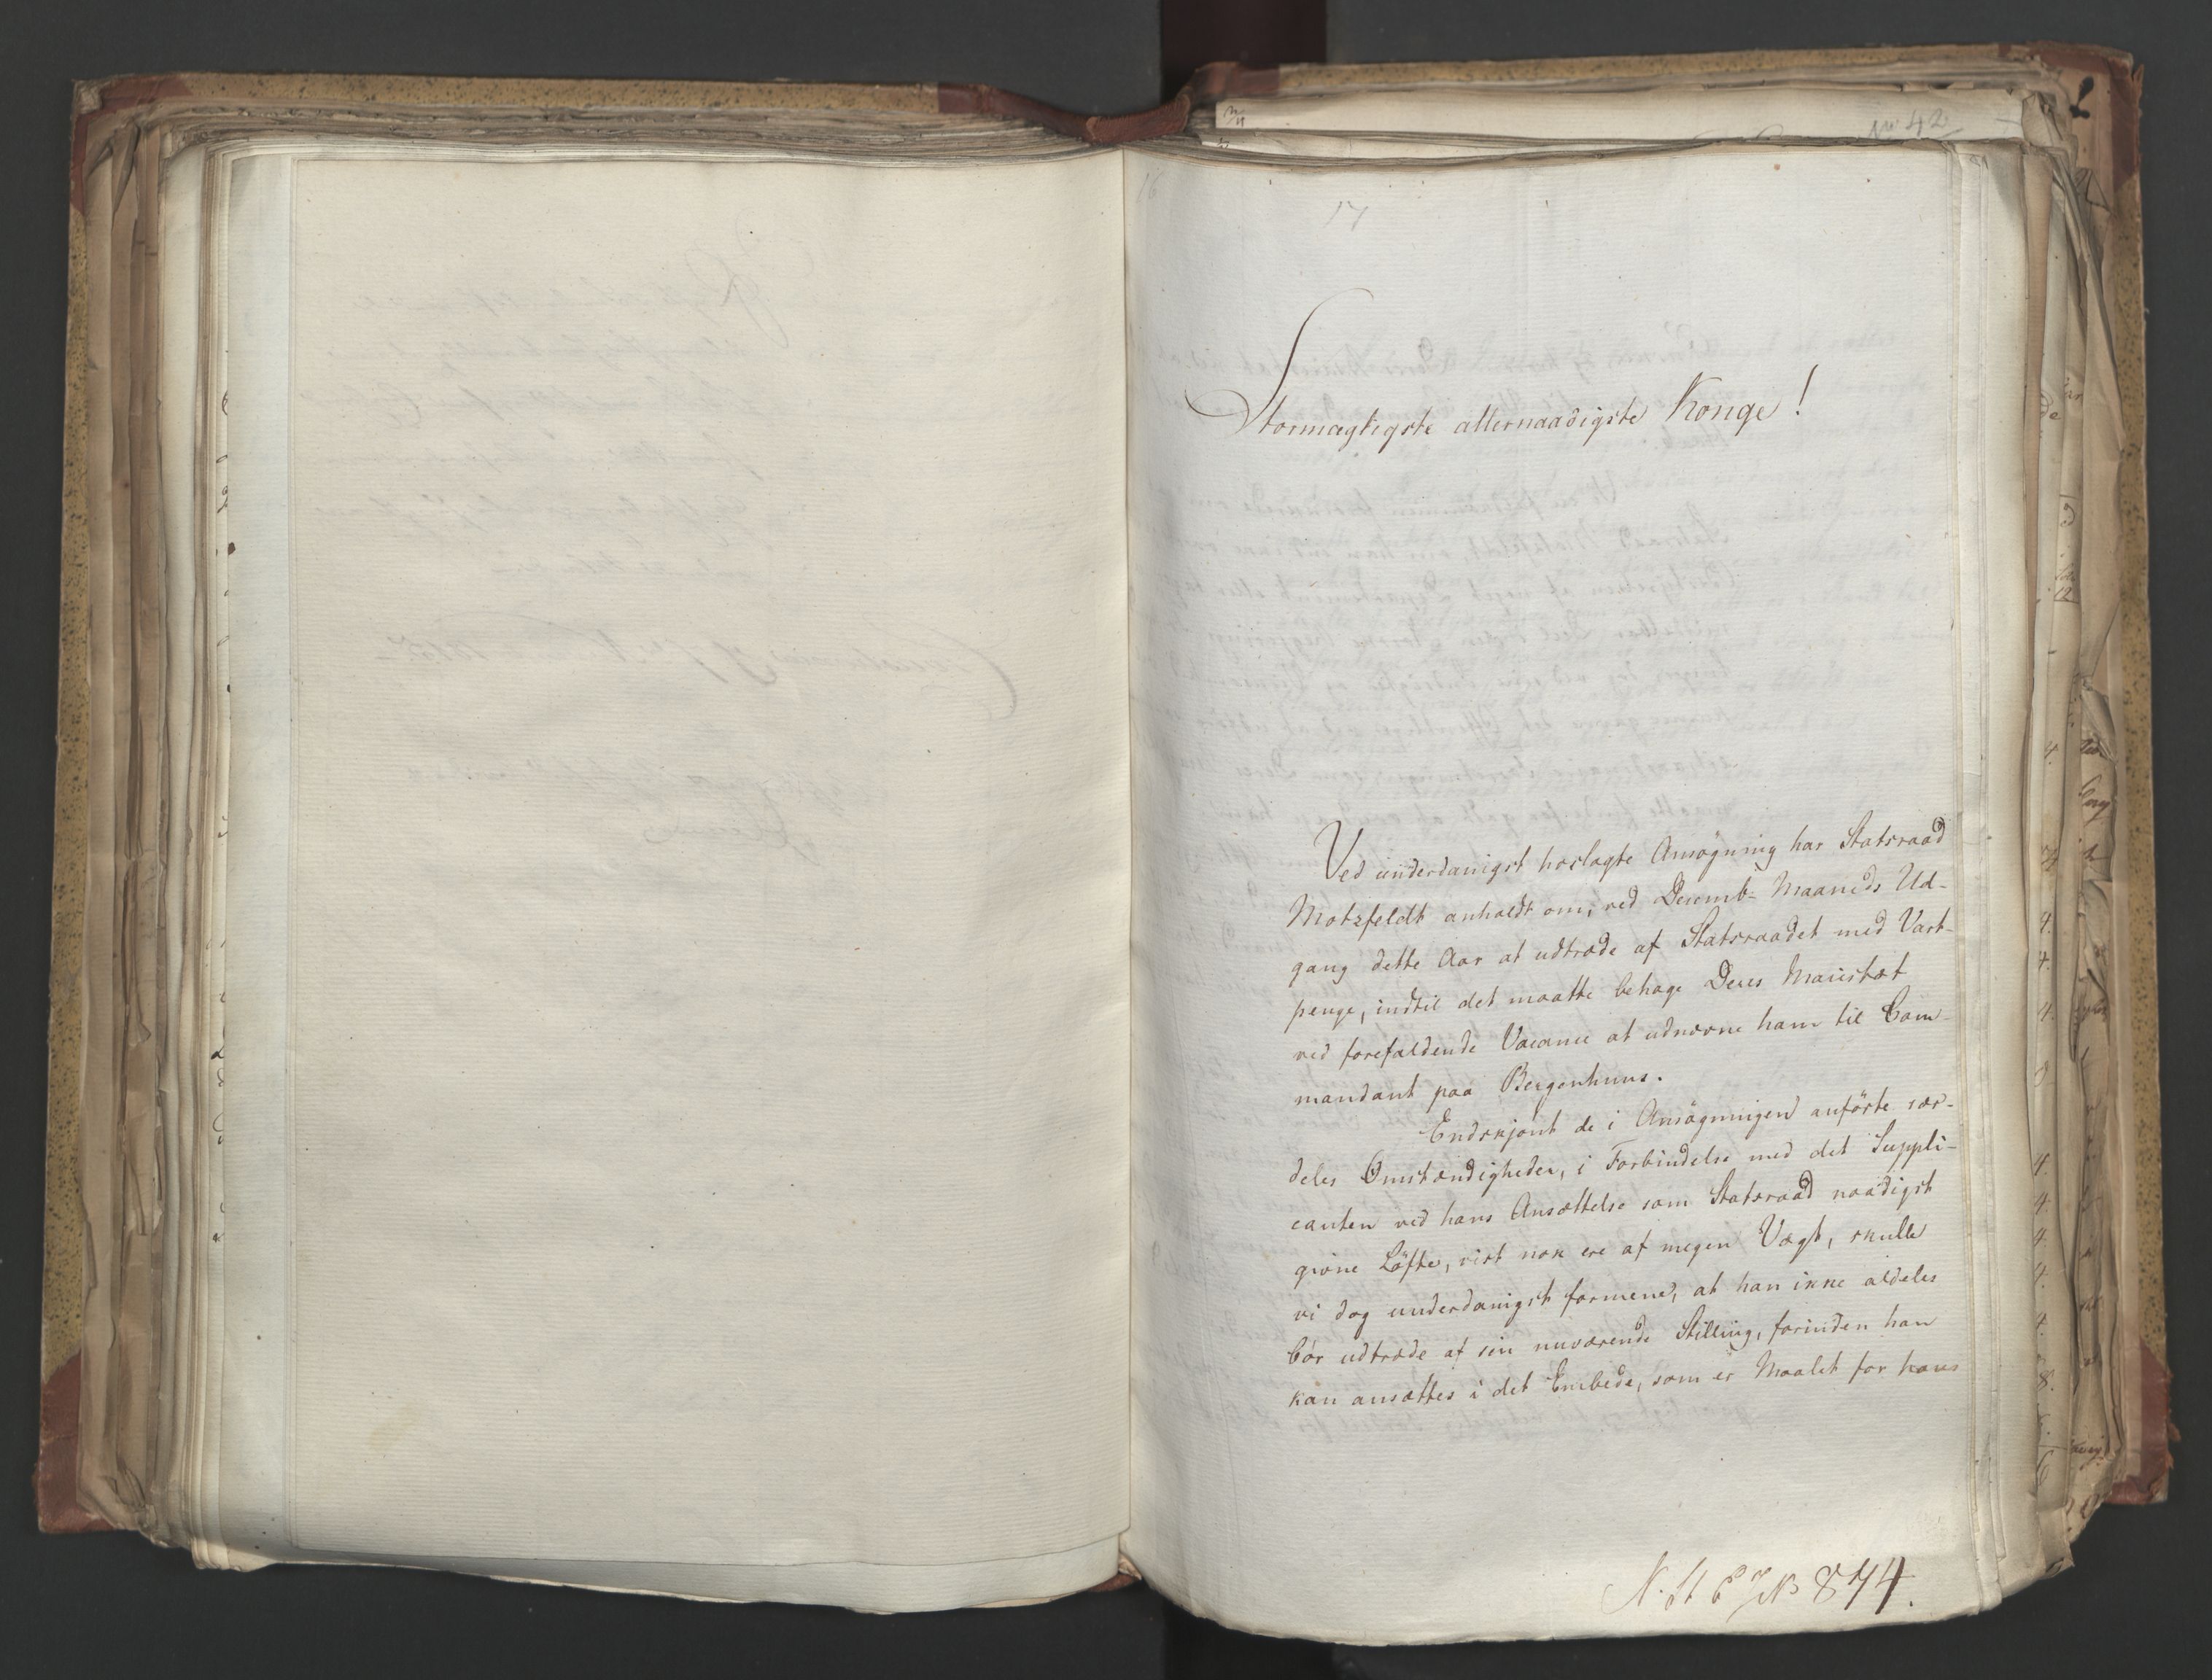 No 42
16
17
Stormægtigste allernaadigste Konge!
Ved underdanigst hoslagte Ansøgning har Statsraad
Motzfeldt anholdt om, ved Decemb- Maaneds Ud-
gang dette Aar at udtræde af Statsraadet med Vart-
penge, indtil det maatte behage Deres Maiestæt
ved forefaldende Vacance at udnævne ham til Com-
mandant paa Bergenhuus.
Endskjönt de i Ansögningen anförte sær-
deles Omstændigheder, i Forbindelse med det Suppli-
canten ved hans Ansættelse som Statsraad naadigst
givne Löfte, vist nok ere af megen Vægt, skulle
vi dog underdanigst formene, at han ikke aldeles
bör udtræde af sin nuværende Stilling, forinden han
kan ansættes i det Embede, som er Maalet for hans
N. St 874.